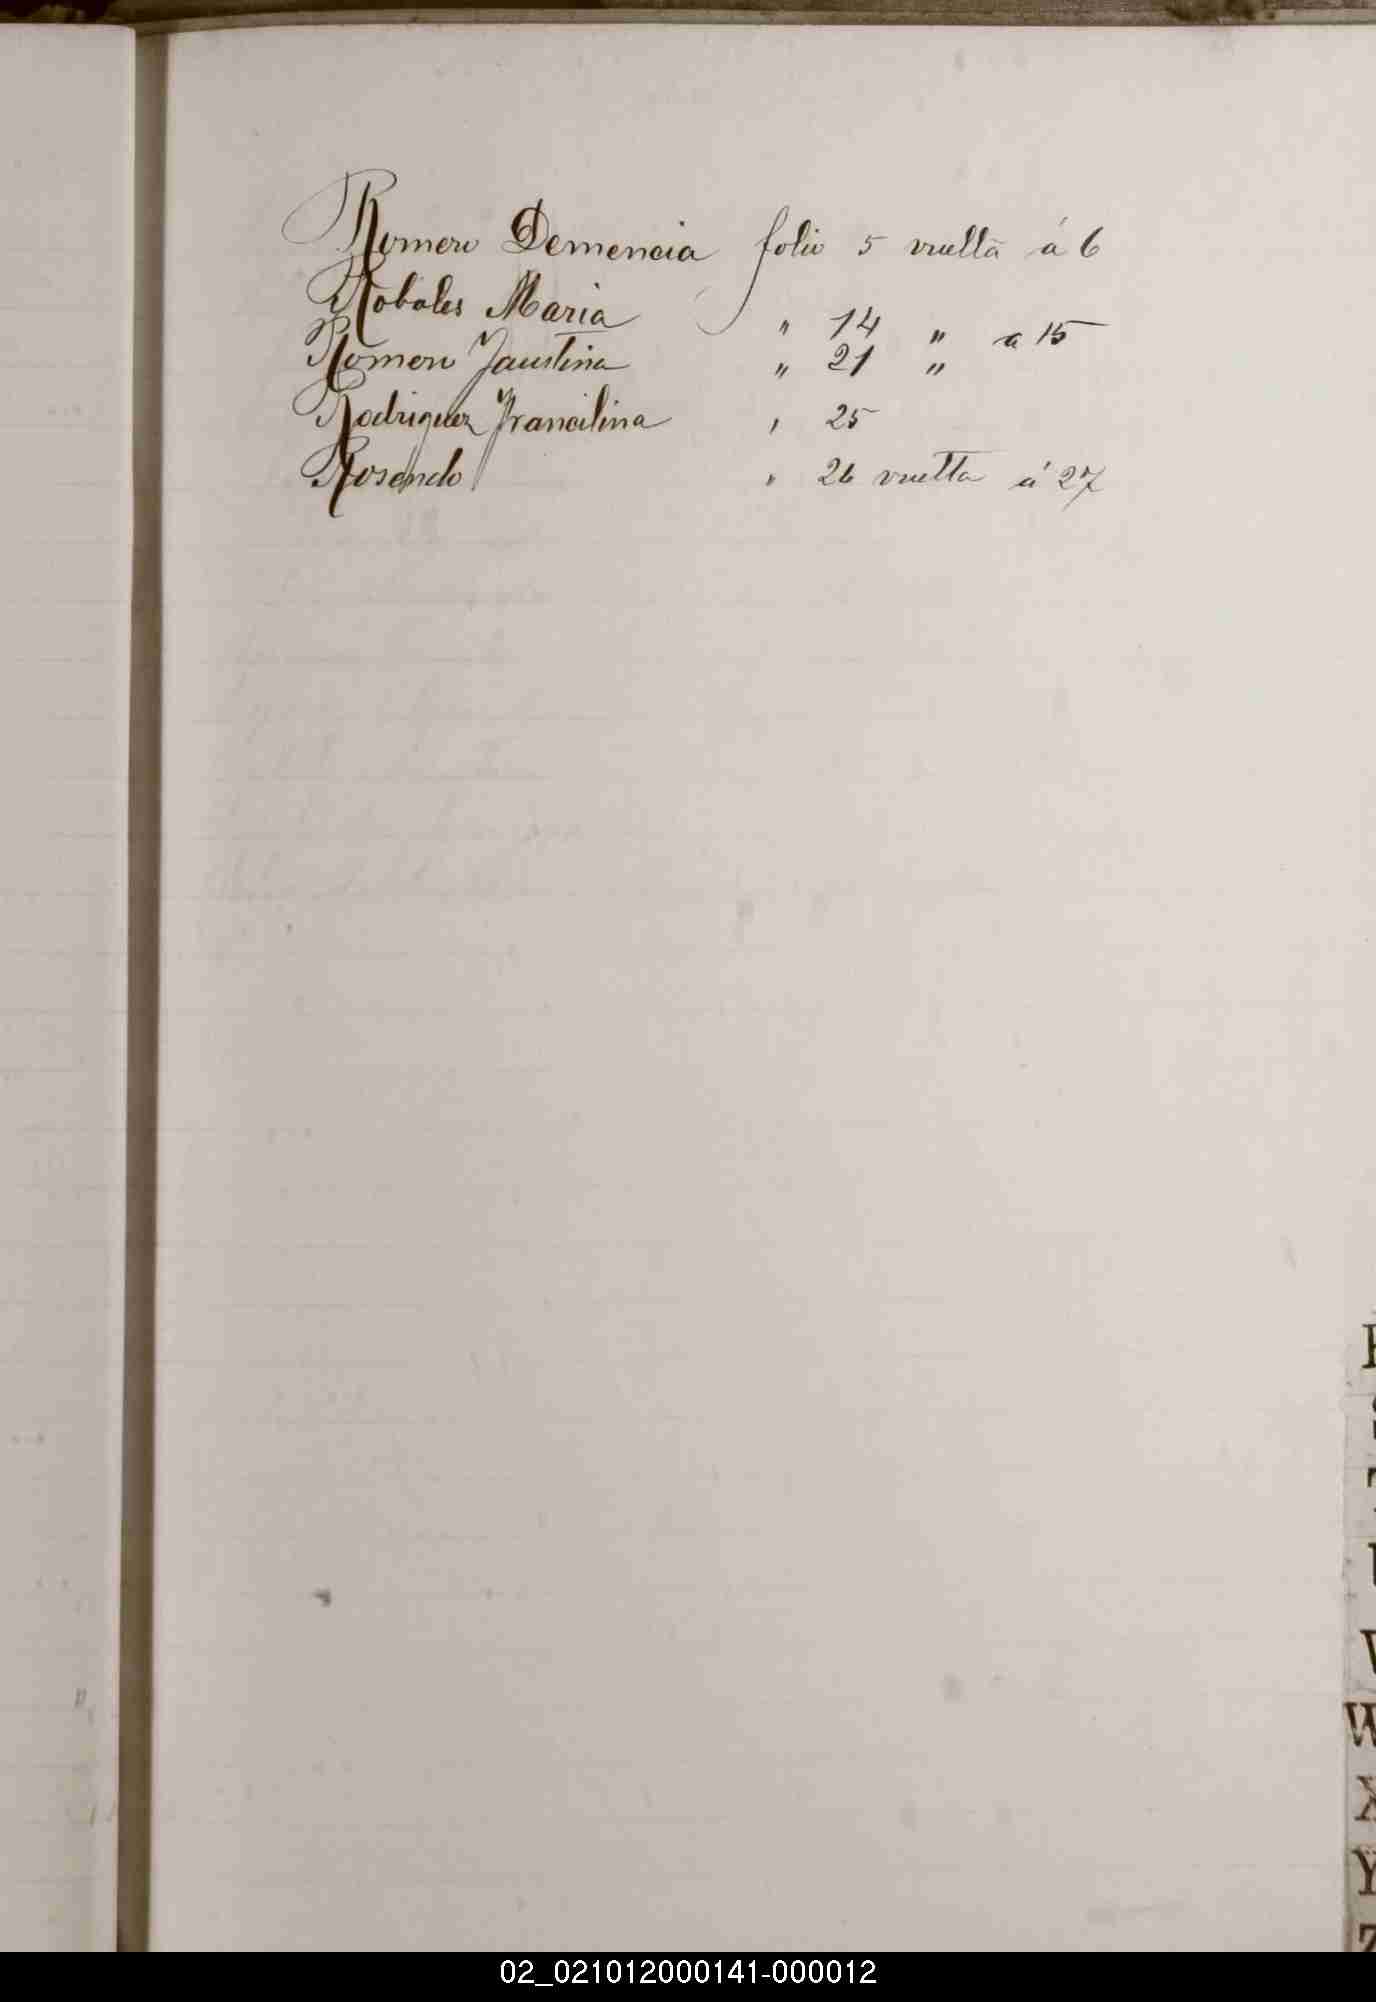 Romero Demencia folio 5 vuelta á 6
Robales Maria " 14 " a 15
Romero Faustina " 21 "
Rodriguez Francilina " 25
Rosendo " 26 vuelta á 27
R
S
T
U
V
W
X
Y
Z
02_021012000141-000012